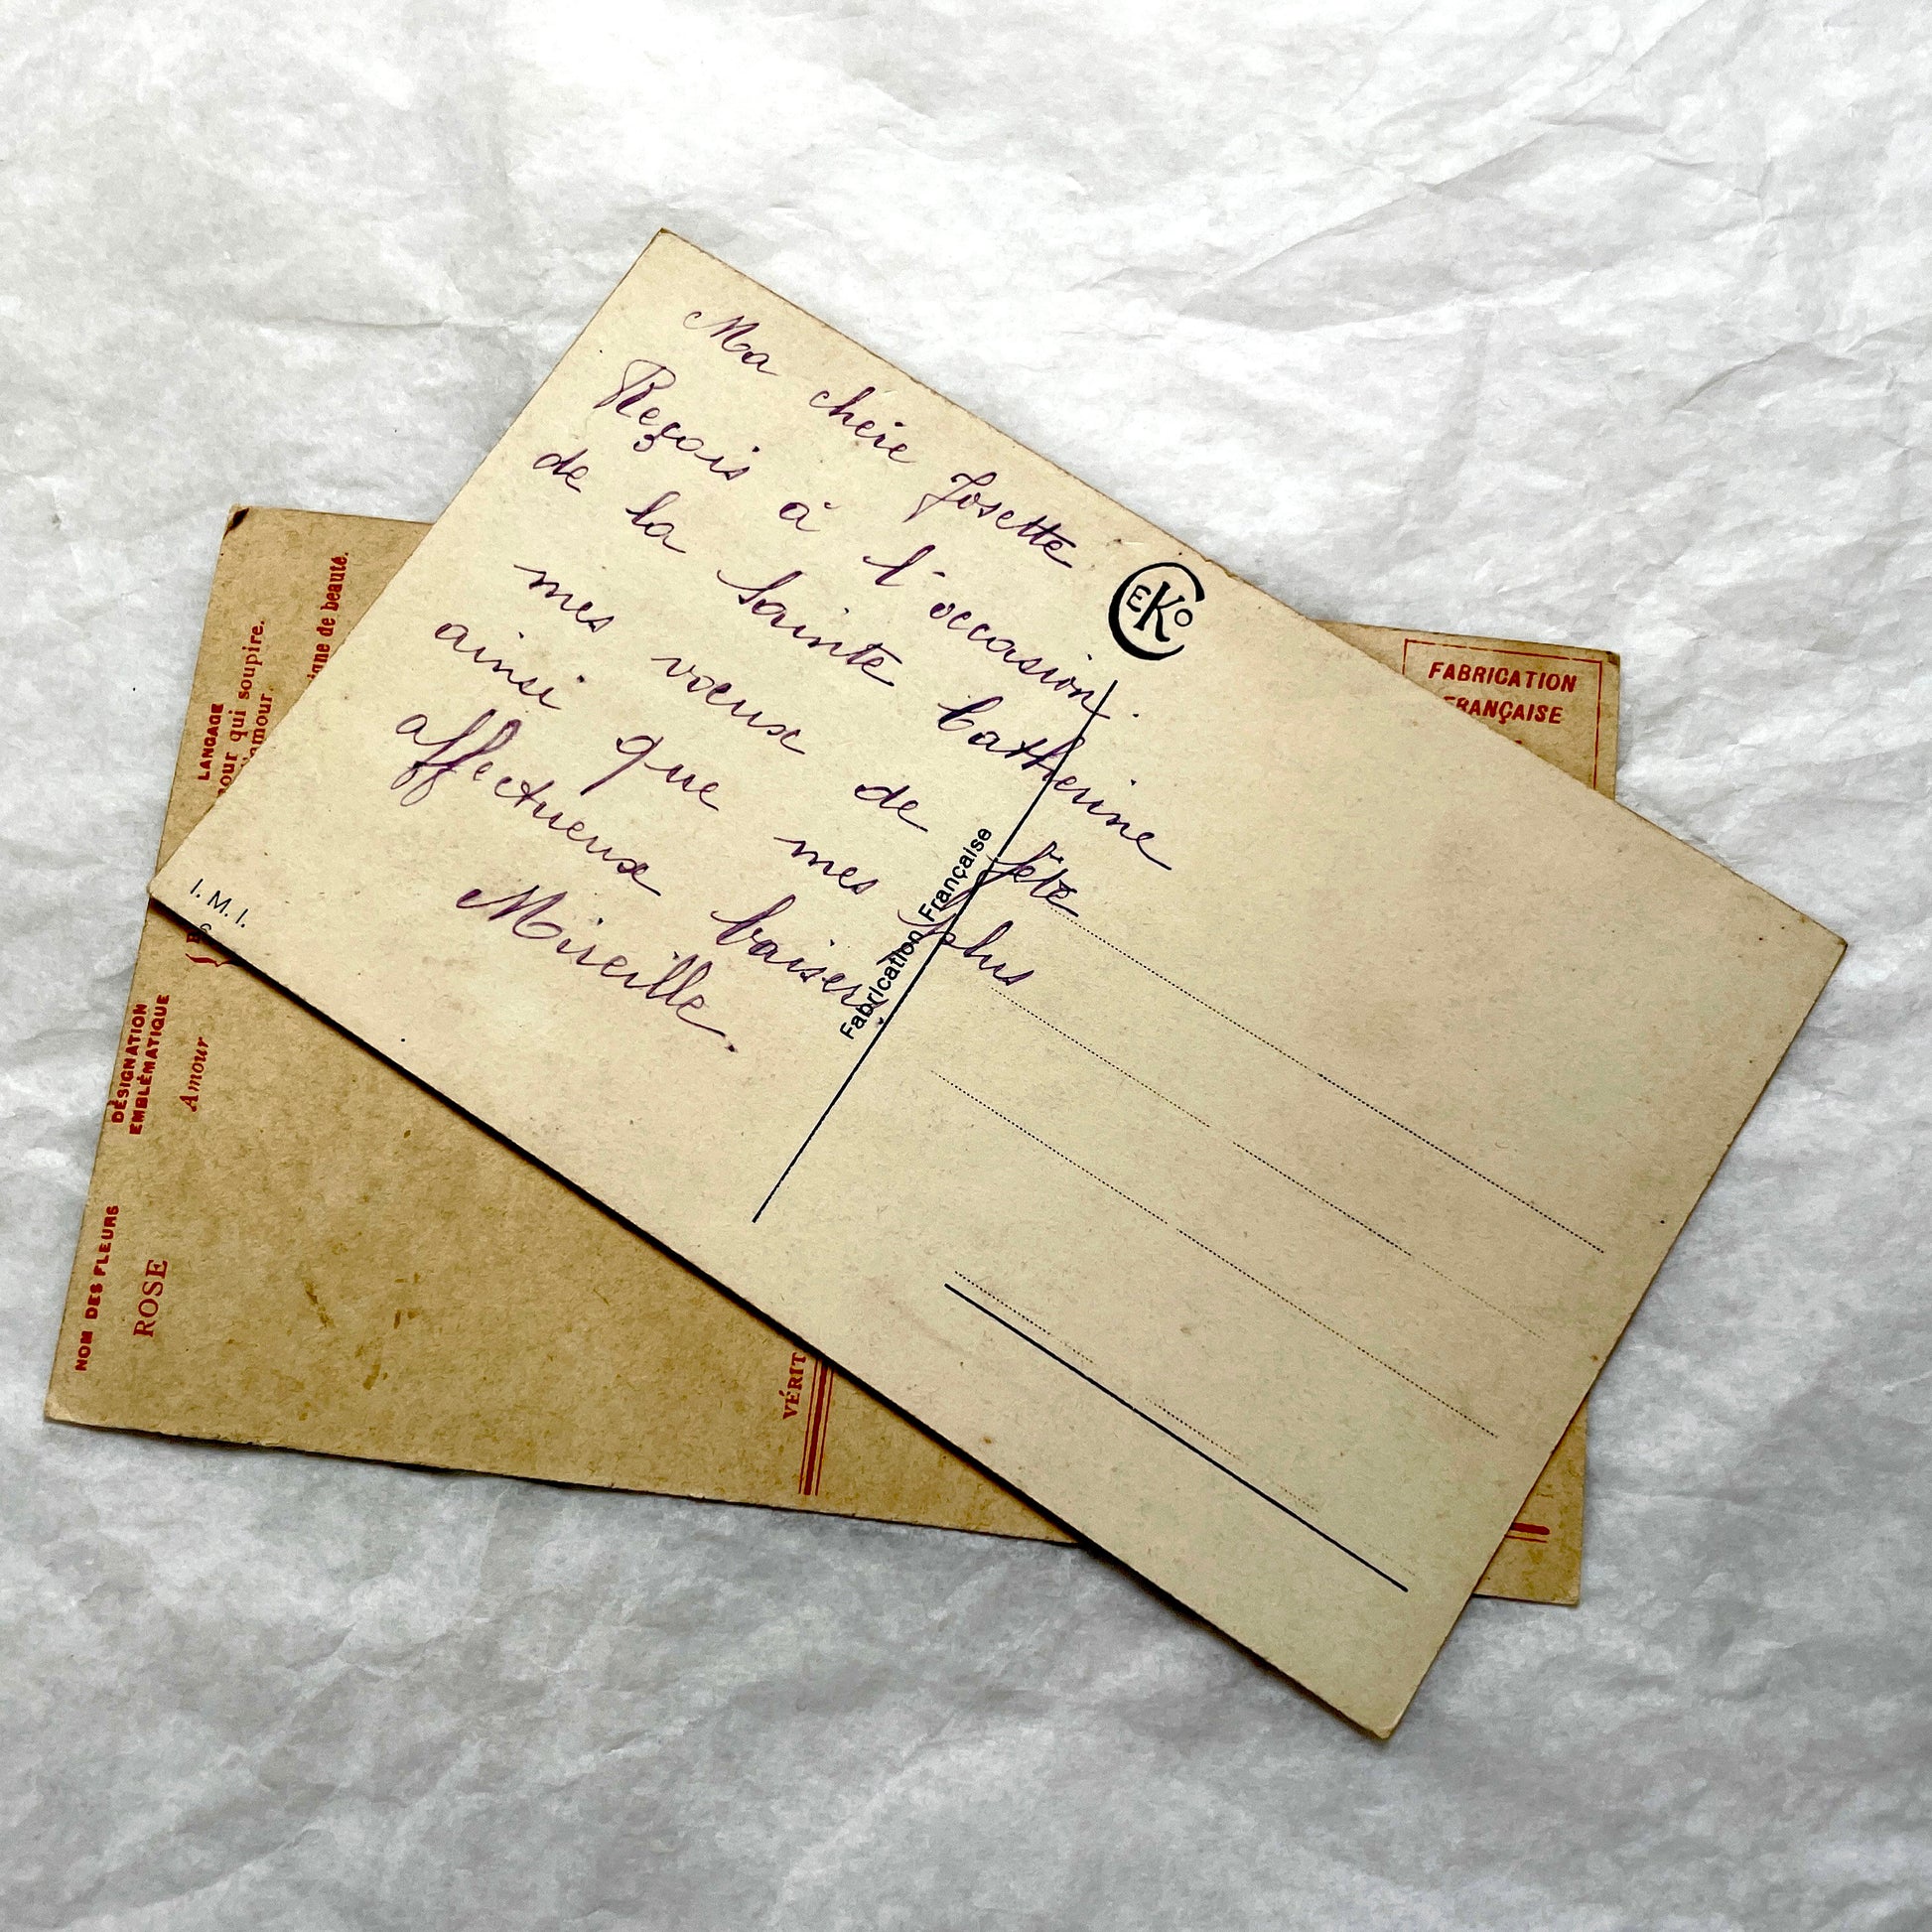 Ma chère Josette
Reçois à l'occasion
de la Sainte Catherine
mes vœux de fête
ainsi que mes plus
affectueux baisers.
Mireille.
CEKO
Fabrication Française
I. M. I.
FABRICATION
FRANÇAISE
LANGAGE
qui soupire.
de beauté.
DÉSIGNATION
EMBLÉMATIQUE
Amour
NOM DES FLEURS
ROSE
VÉRIT